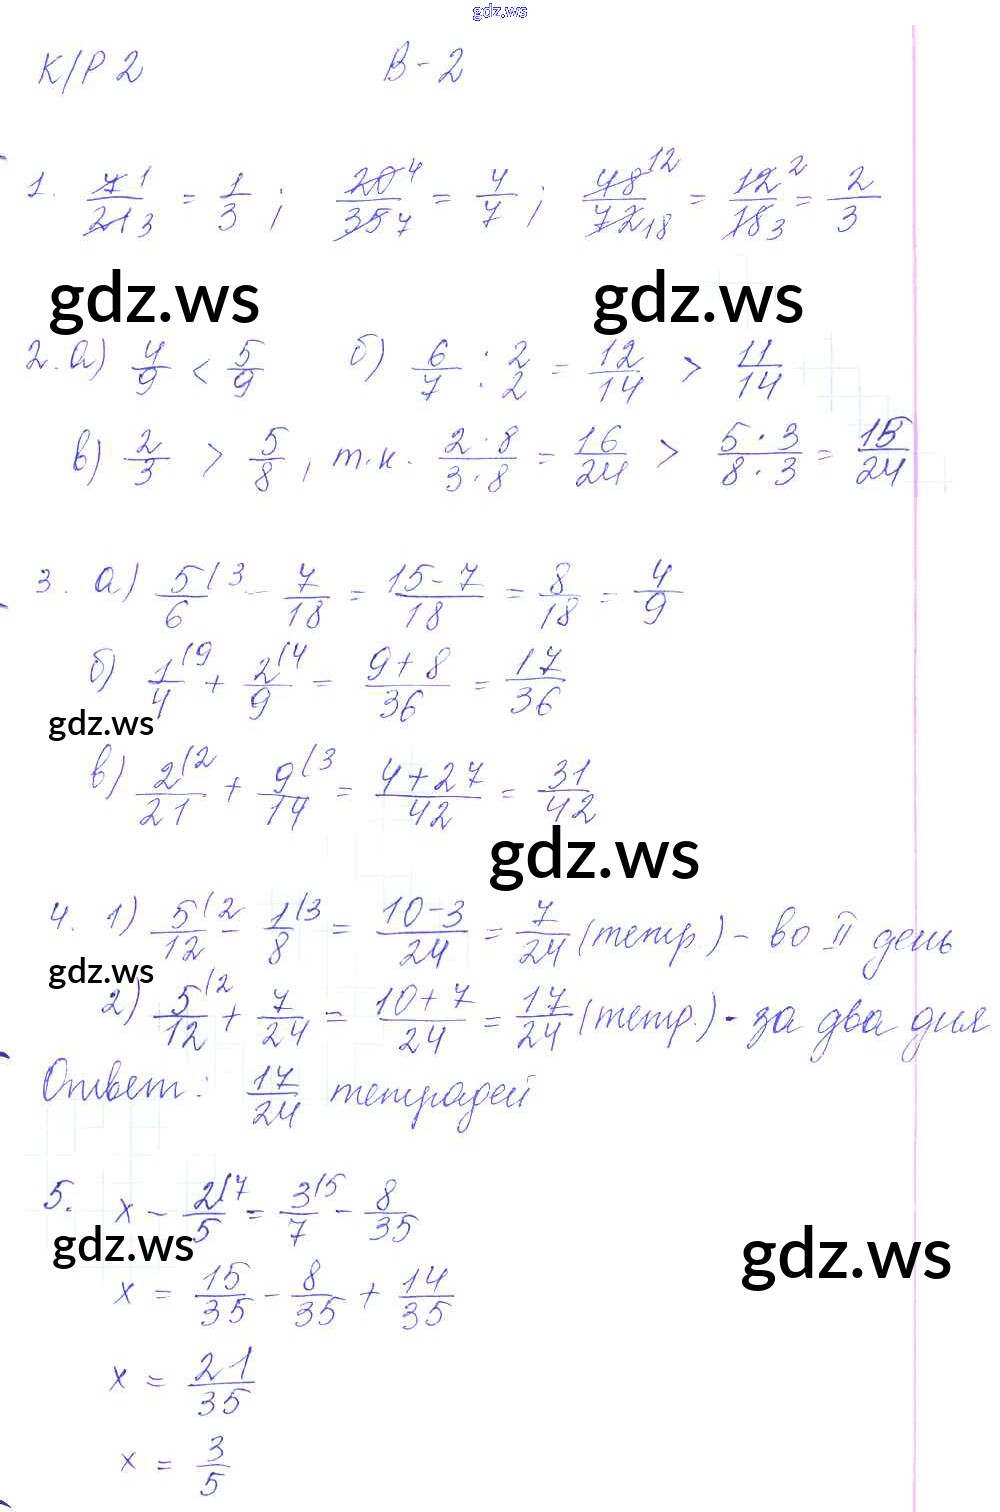 gdz.ws
К/Р 2 В-2
1. 7¹/21₃ = 1/3 ; 20⁴/35₇ = 4/7 ; 48¹²/72₁₈ = 12²/18₃ = 2/3
gdz.ws gdz.ws
2. а) 4/9 < 5/9 б) 6/7 : 2/2 = 12/14 > 11/14
в) 2/3 > 5/8 , т.к. 2·8/3·8 = 16/24 > 5·3/8·3 = 15/24
3. а) 5/6 (3 - 7/18 = 15-7/18 = 8/18 = 4/9
б) 1/4 (9 + 2/9 (4 = 9+8/36 = 17/36
gdz.ws
в) 2/21 (2 + 9/14 (3 = 4+27/42 = 31/42
gdz.ws
4. 1) 5/12 (2 - 1/8 (3 = 10-3/24 = 7/24 (тетр.) - во II день
gdz.ws
2) 5/12 (2 + 7/24 = 10+7/24 = 17/24 (тетр.) - за два дня
Ответ: 17/24 тетрадей
5. x - 2/5 (7 = 3/7 (5 - 8/35
gdz.ws gdz.ws
x = 15/35 - 8/35 + 14/35
x = 21/35
x = 3/5